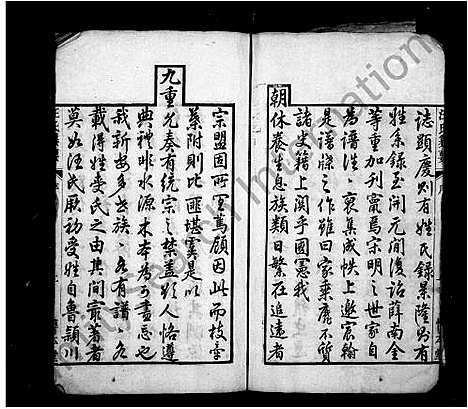 誌顯慶則有姓氏錄景隆則有
姓系錄至開元間復詔薛南金
等重加刊竄焉宋明之世家自
為譜法裒集成帙上邀宸翰
是譜牒之作雖曰家乘靡不質
諸史籍上関乎國憲我
朝休養生息族類日繁在追遠者
宗盟固所宜篤顧因此而枝牽
葉附則比匪堪虞是以
九重允奏有統宗之禁蓋欲人恪遵
典禮非水源木本為可盡忘也
我新安多世族各有譜各
載得姓受氏之由其間最著者
莫如汪氏厥初受姓自魯潁川